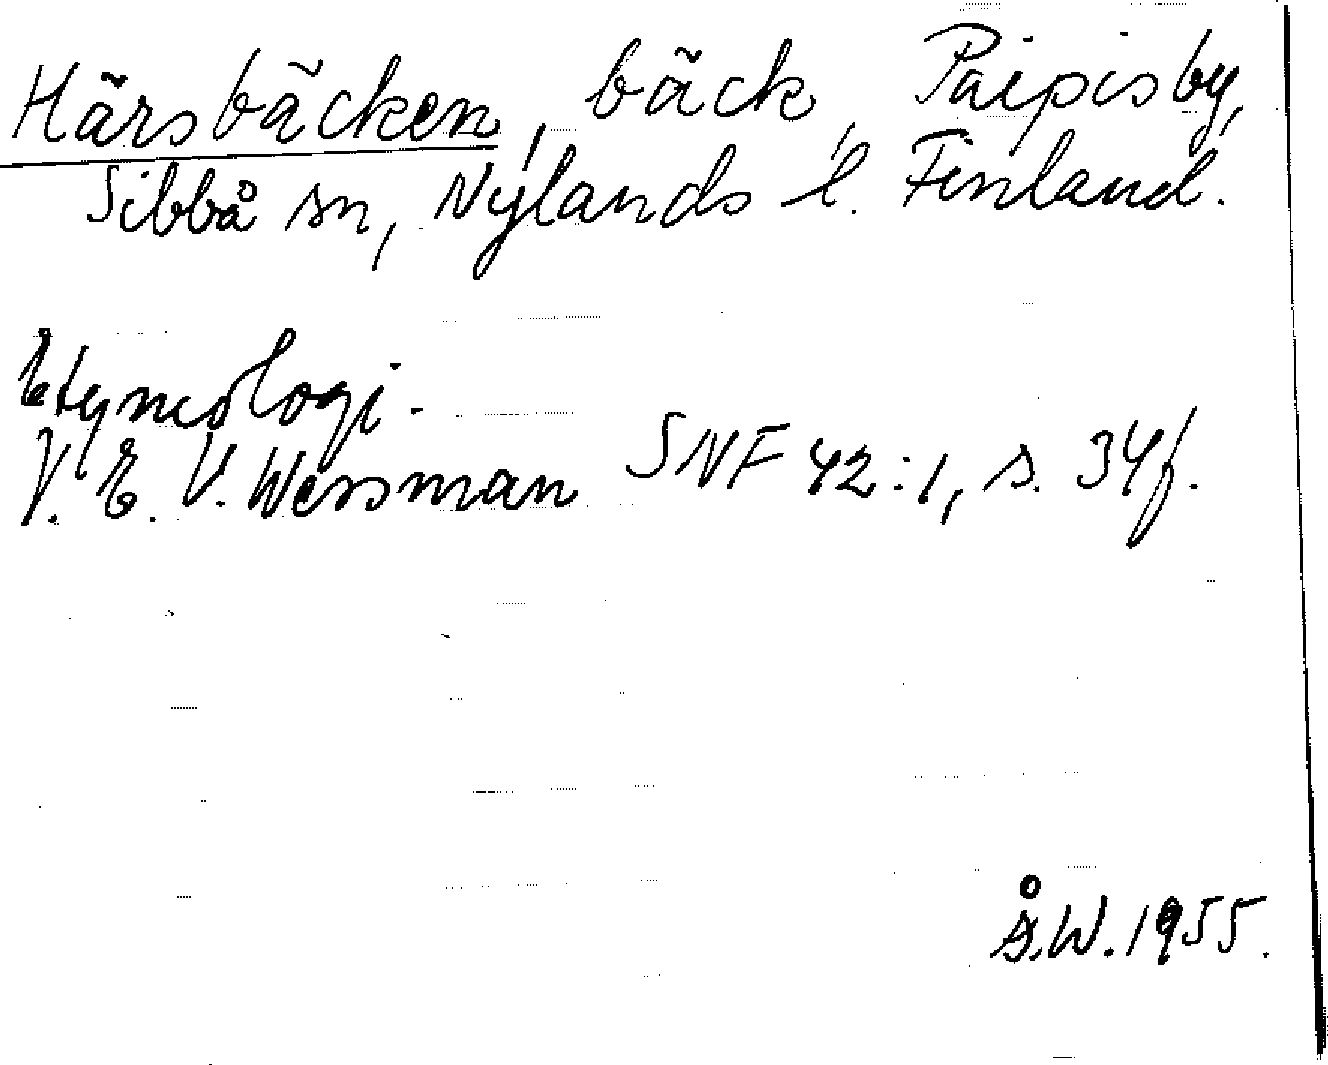 Härsbäcken, bäck, Paipis by,
Sibbå sn, Nylands l. Finland.
Etymologi.
V. E. V. Wessman SNF 42:1, s. 34f.
Å.W. 1955.